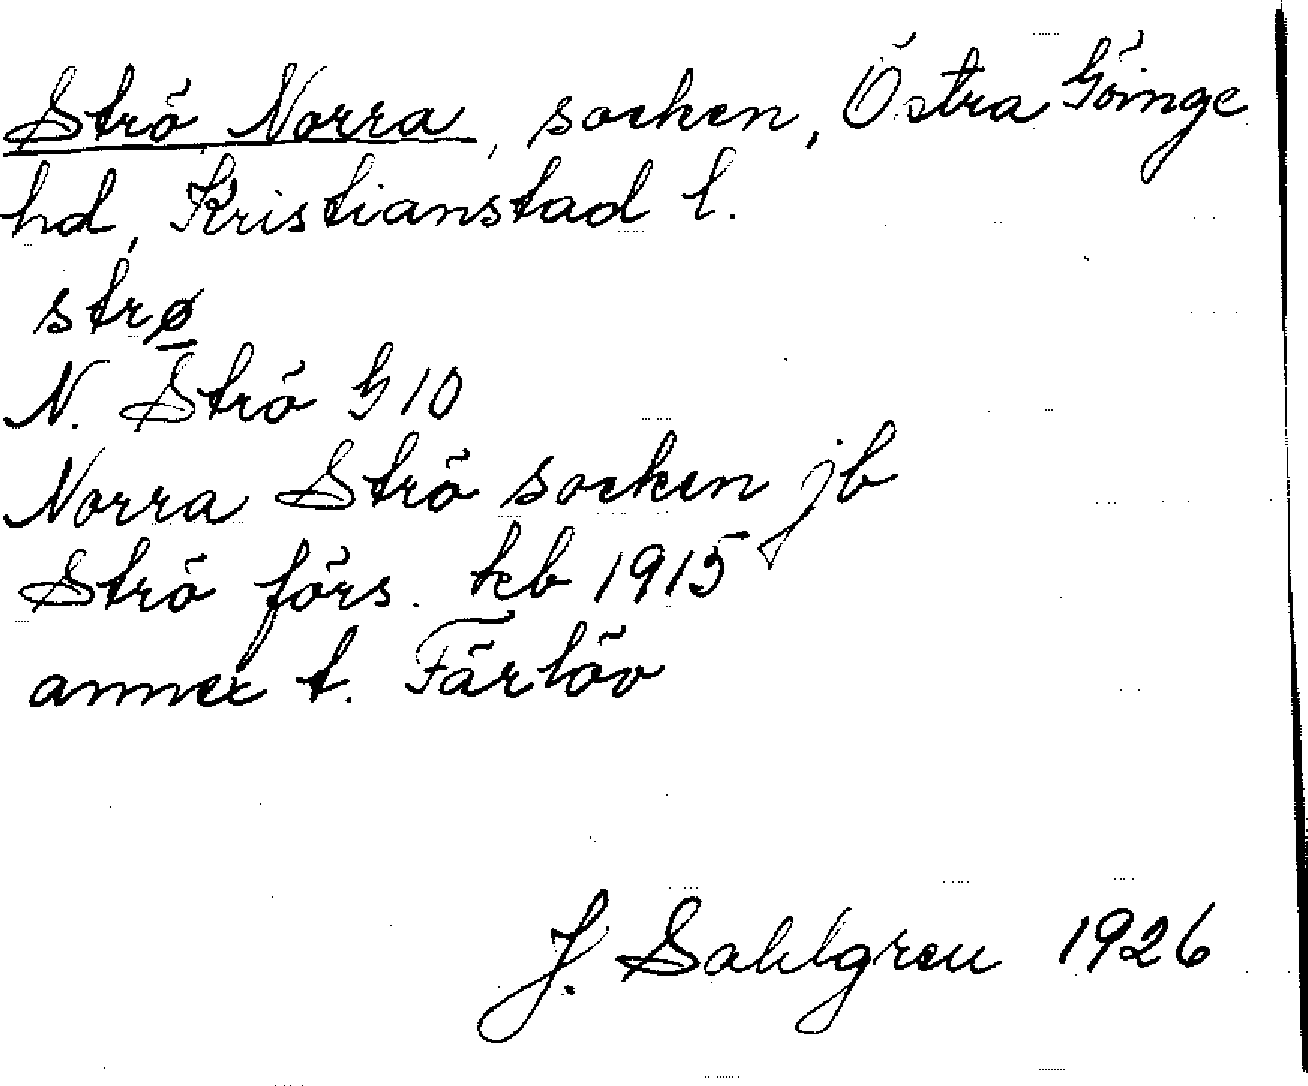 Strö Norra, socken, Östra Göinge
hd, Kristianstad l.
strø
N. Strö G 10
Norra Strö socken jb
Strö förs. kb 1915
annex t. Färlöv
J. Sahlgren 1926